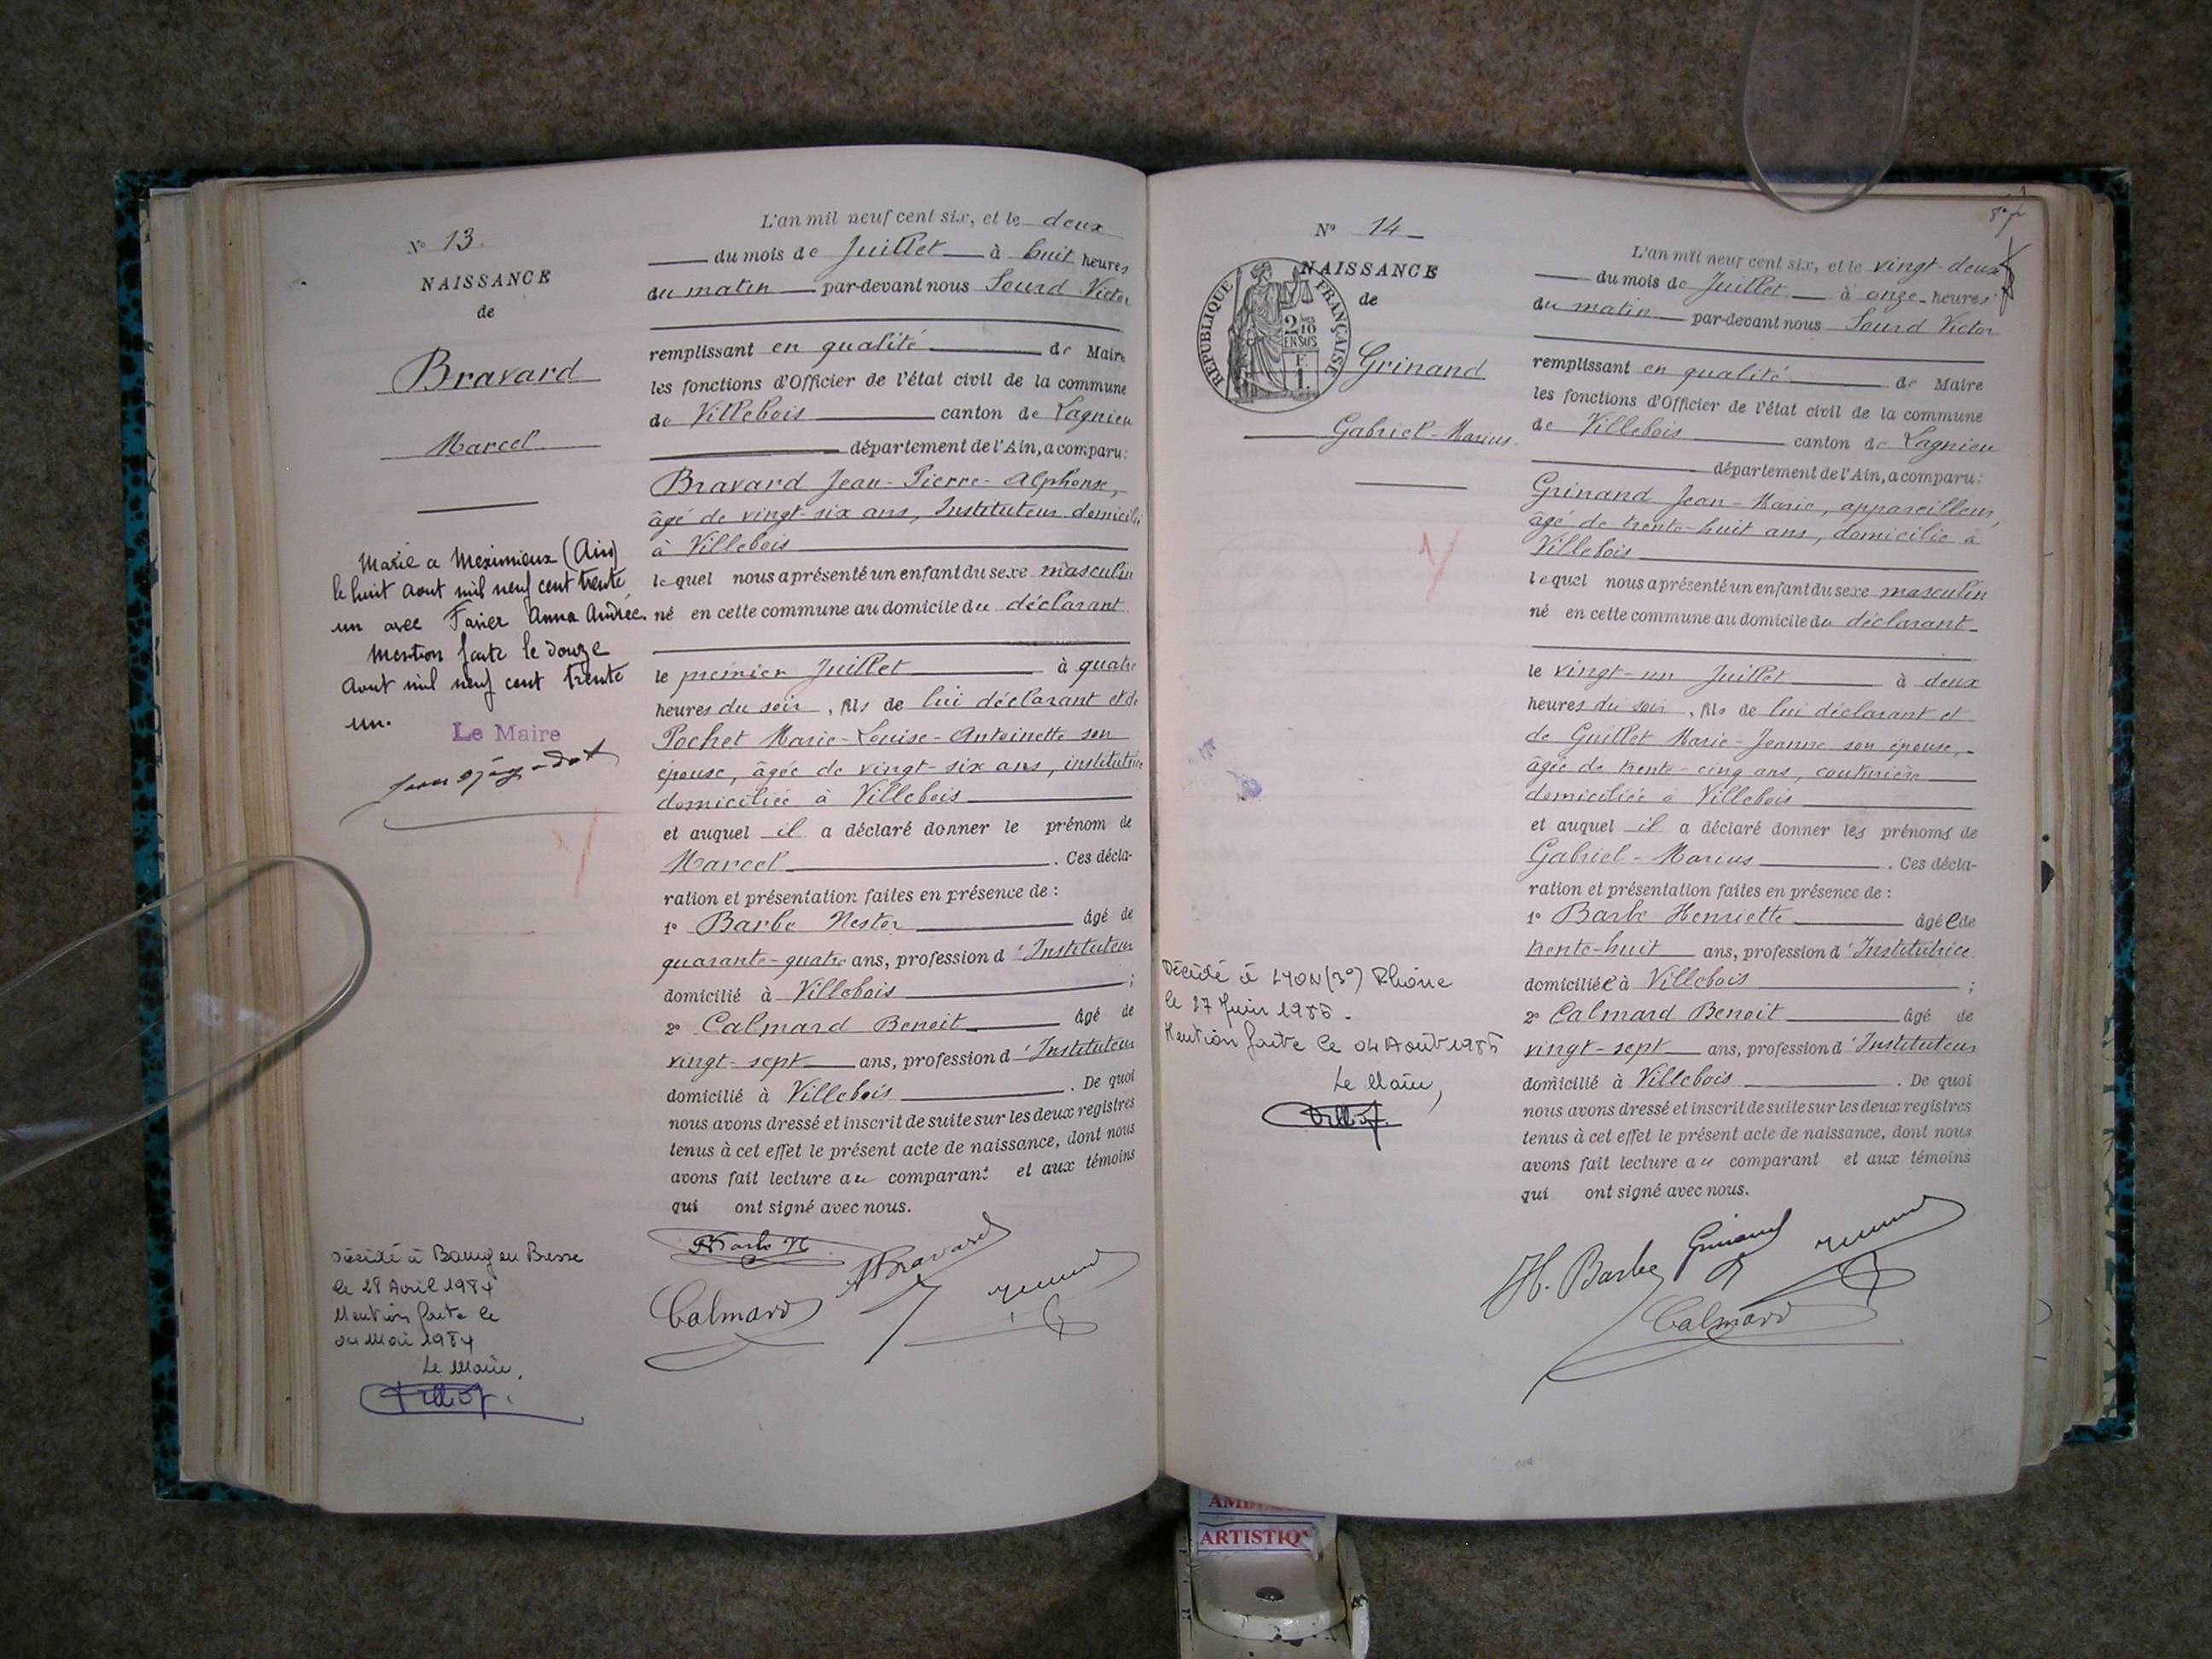 N° 13.
NAISSANCE
de
Bravard
Marcel
Marié à Meximieux (Ain)
le huit aout mil neuf cent trente
un avec Favier Anna Andrée.
Mention faite le douze
Aout mil neuf cent trente
un.
Le Maire
Décédé à Bourg en Bresse
le 28 Avril 1984
Mention faite le
04 Mai 1984
Le Maire,
L'an mil neuf cent six, et le deux
du mois de Juillet à huit heures
du matin par-devant nous Sourd Victor
remplissant en qualité de Maire
les fonctions d'Officier de l'état civil de la commune
de Villebois canton de Lagnieu
département de l'Ain, a comparu:
Bravard Jean-Pierre-Alphonse,
âgé de vingt-six ans, Instituteur domicilié
à Villebois
lequel nous a présenté un enfant du sexe masculin
né en cette commune au domicile du déclarant
le premier Juillet à quatre
heures du soir, fils de lui déclarant et de
Pochet Marie-Louise-Antoinette son
épouse, âgée de vingt-six ans, institutrice
domiciliée à Villebois
et auquel il a déclaré donner le prénom de
Marcel. Ces décla-
ration et présentation faites en présence de:
1° Barbe Nestor âgé de
quarante-quatre ans, profession d'Instituteur
domicilié à Villebois;
2° Calmard Benoit âgé de
vingt-sept ans, profession d'Instituteur
domicilié à Villebois. De quoi
nous avons dressé et inscrit de suite sur les deux registres
tenus à cet effet le présent acte de naissance, dont nous
avons fait lecture au comparant et aux témoins
qui ont signé avec nous.
Barbe N.
ABravard
Calmard
N° 14
NAISSANCE
de
RÉPUBLIQUE FRANÇAISE
2/10
EN SUS
Grinand
Gabriel-Marius.
Décédé à LYON (3°) Rhône
Le Maire,
L'an mil neuf cent six, et le vingt-deux
du mois de Juillet à onze heures
du matin par-devant nous Sourd Victor
remplissant en qualité de Maire
les fonctions d'Officier de l'état civil de la commune
de Villebois canton de Lagnieu
département de l'Ain, a comparu:
Grinand Jean-Marie, appareilleur,
âgé de trente-huit ans, domicilié à
Villebois
lequel nous a présenté un enfant du sexe masculin
né en cette commune au domicile du déclarant
le vingt-un Juillet à deux
heures du soir, fils de lui déclarant et
de Guillet Marie-Jeanne son épouse,
âgée de trente-cinq ans, couturière
domiciliée à Villebois
et auquel il a déclaré donner les prénoms de
Gabriel-Marius. Ces décla-
ration et présentation faites en présence de:
1° Barbe Henriette âgée de
trente-huit ans, profession d'Institutrice
domiciliée à Villebois;
2° Calmard Benoit âgé de
vingt-sept ans, profession d'Instituteur
domicilié à Villebois. De quoi
nous avons dressé et inscrit de suite sur les deux registres
tenus à cet effet le présent acte de naissance, dont nous
avons fait lecture au comparant et aux témoins
qui ont signé avec nous.
H. Barbe Grinand
Calmard
ARTISTIQ